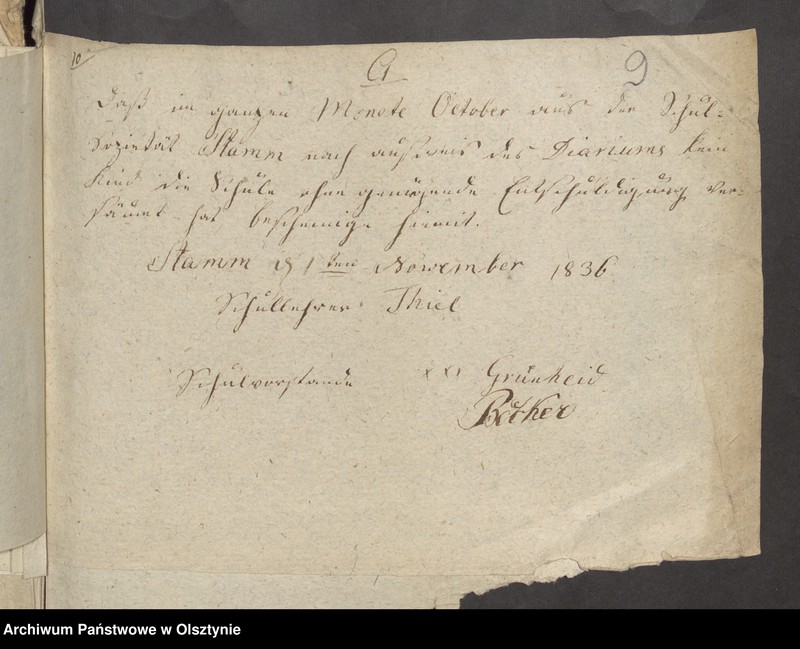 10
9
a
Daß im ganzen Monate October aus der Schul-
Sozietät Stamm nach ausweis des Diariums kein
Kind die Schule ohne genügende Entschuldigung ver-
säumt hat bescheinige hiermit.
Stamm d 1ten November 1836
Schullehrer Thiel
Schulvorstande xxx Grünheid
Becker
Archiwum Państwowe w Olsztynie